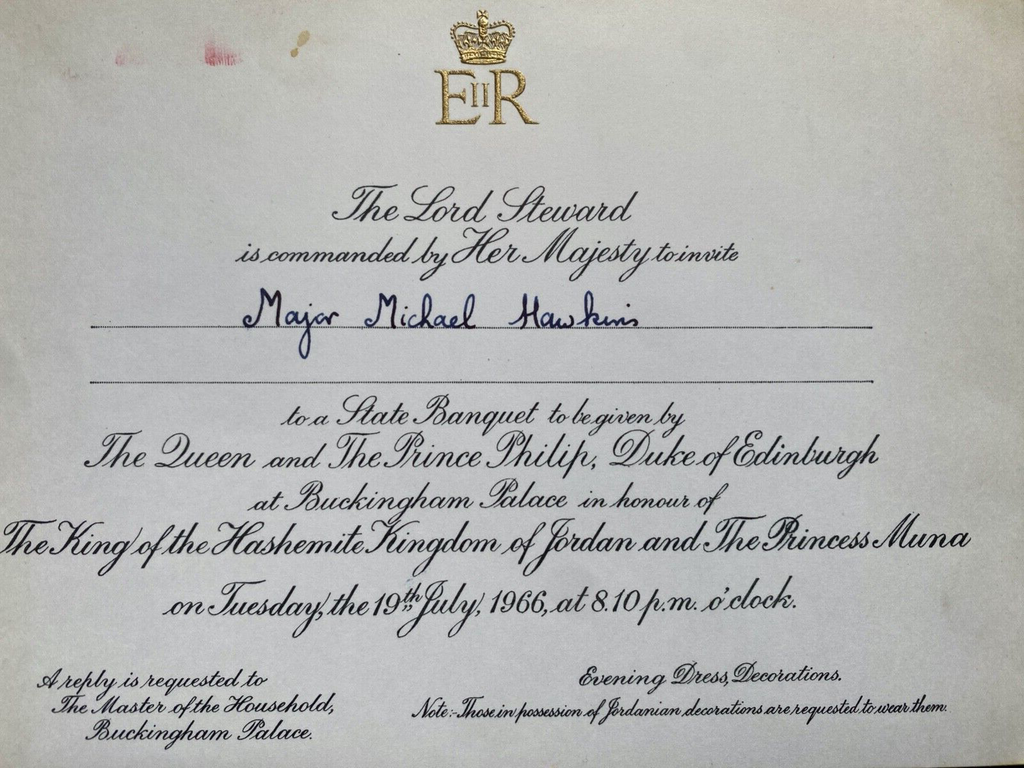 EIIR
The Lord Steward
is commanded by Her Majesty to invite
Major Michael Hawkins
to a State Banquet to be given by
The Queen and The Prince Philip, Duke of Edinburgh
at Buckingham Palace in honour of
The King of the Hashemite Kingdom of Jordan and The Princess Muna
on Tuesday, the 19th July, 1966, at 8.10 p.m. o'clock.
A reply is requested to
The Master of the Household,
Buckingham Palace.
Evening Dress, Decorations.
Note:-Those in possession of Jordanian decorations are requested to wear them.